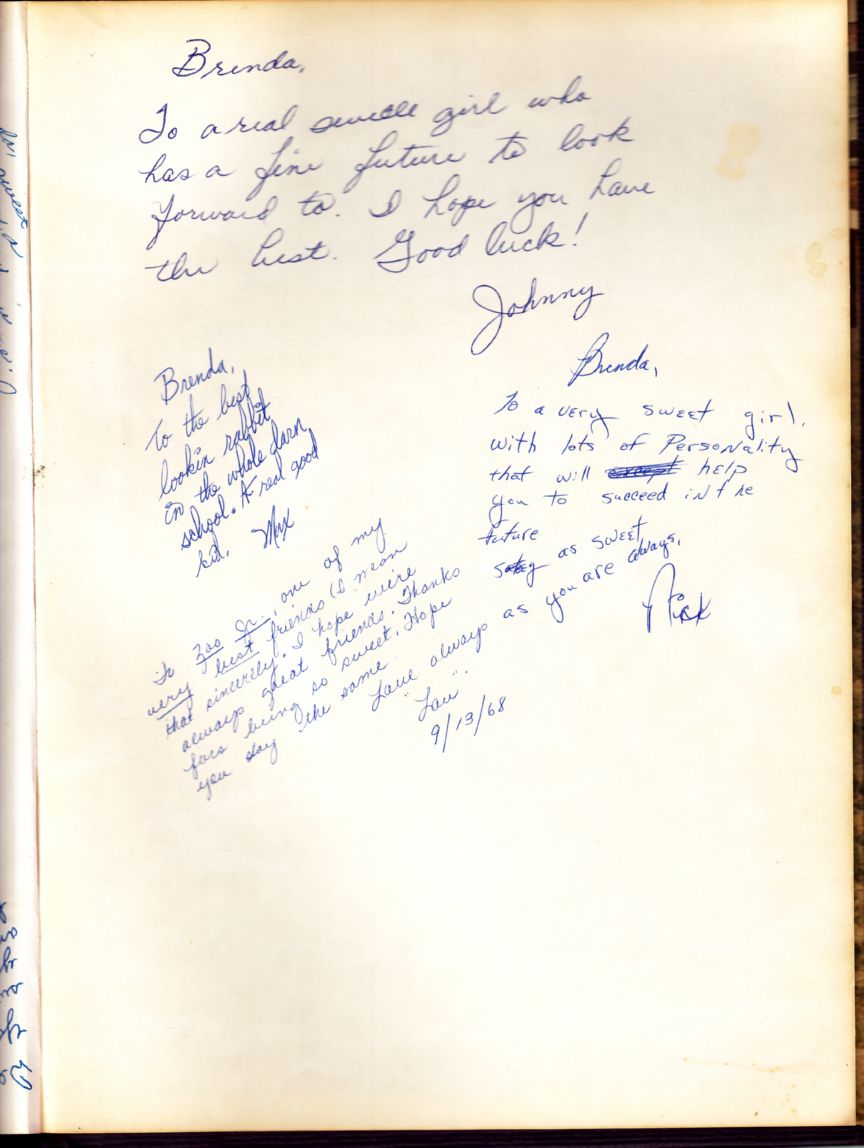 Brenda,
To a real sweete girl who
has a fine future to look
forward to. I hope you have
the best. Good luck!
Johnny
Brenda,
To the best
lookin rabbit
in the whole darn
school. A real good
kid. Max
Brenda,
To a very sweet girl,
with lots of Personality
that will except help
you to succeed in the
future
stay as sweet
as you are always.
Rick
To Zoo Jr., one of my
very best friends (I mean
that sincerely. I hope we're
always great friends. Thanks
for being so sweet. Hope
you stay the same
Love always
"Lou".
9/13/68